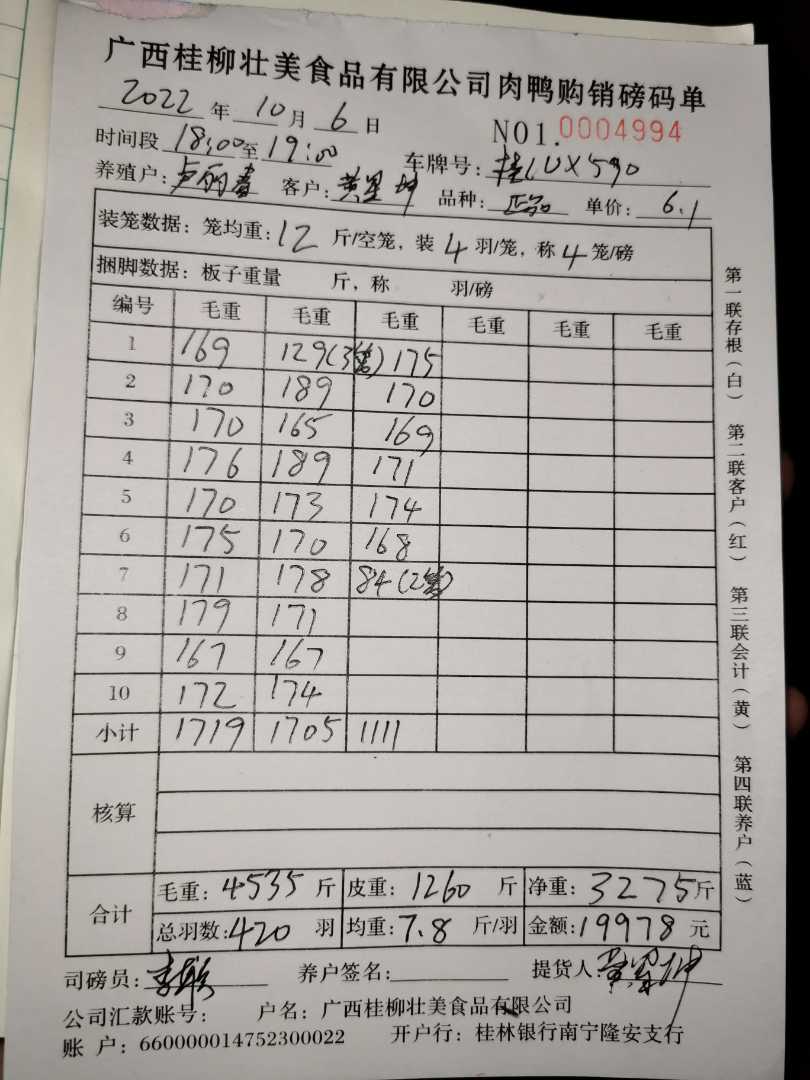 广西桂柳壮美食品有限公司肉鸭购销磅码单
2022年10月6日 NO1.0004994
时间段18:00至19:00 车牌号:桂LUX590
养殖户:卢丽春 客户:黄 坤 品种: 单价:6.1
装笼数据:笼均重:12斤/空笼,装4羽/笼,称4笼/磅
捆脚数据:板子重量 斤,称 羽/磅
编号 毛重 毛重 毛重 毛重 毛重 毛重
1 169 129(3笼) 175
2 170 189 170
3 170 165 169
4 176 189 171
5 170 173 174
6 175 170 168
7 171 178 84(2笼)
8 179 171
9 167 167
10 172 174
小计 1719 1705 1111
核算
合计 毛重:4535斤 皮重:1260斤 净重:3275斤
总羽数:420羽 均重:7.8斤/羽 金额:19978元
司磅员:李 养户签名: 提货人:黄 坤
公司汇款账号: 户名:广西桂柳壮美食品有限公司
账 户:660000014752300022 开户行:桂林银行南宁隆安支行
第一联存根(白) 第二联客户(红) 第三联会计(黄) 第四联养户(蓝)